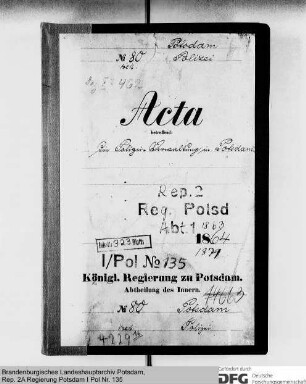 Potsdam
№ 80 Polizei
Acta
betreffend:
die Polizei-Verwaltung in Potsdam
Rep. 2
Reg. Potsd
Abt. 1 1863
1864
I/Pol № 135
Königl. Regierung zu Potsdam.
Abtheilung des Innern.
№ 80 Potsdam
Polizei
Brandenburgisches Landeshauptarchiv Potsdam,
Rep. 2A Regierung Potsdam I Pol Nr. 135
Gefördert durch
DFG Deutsche
Forschungsgemeinschaft